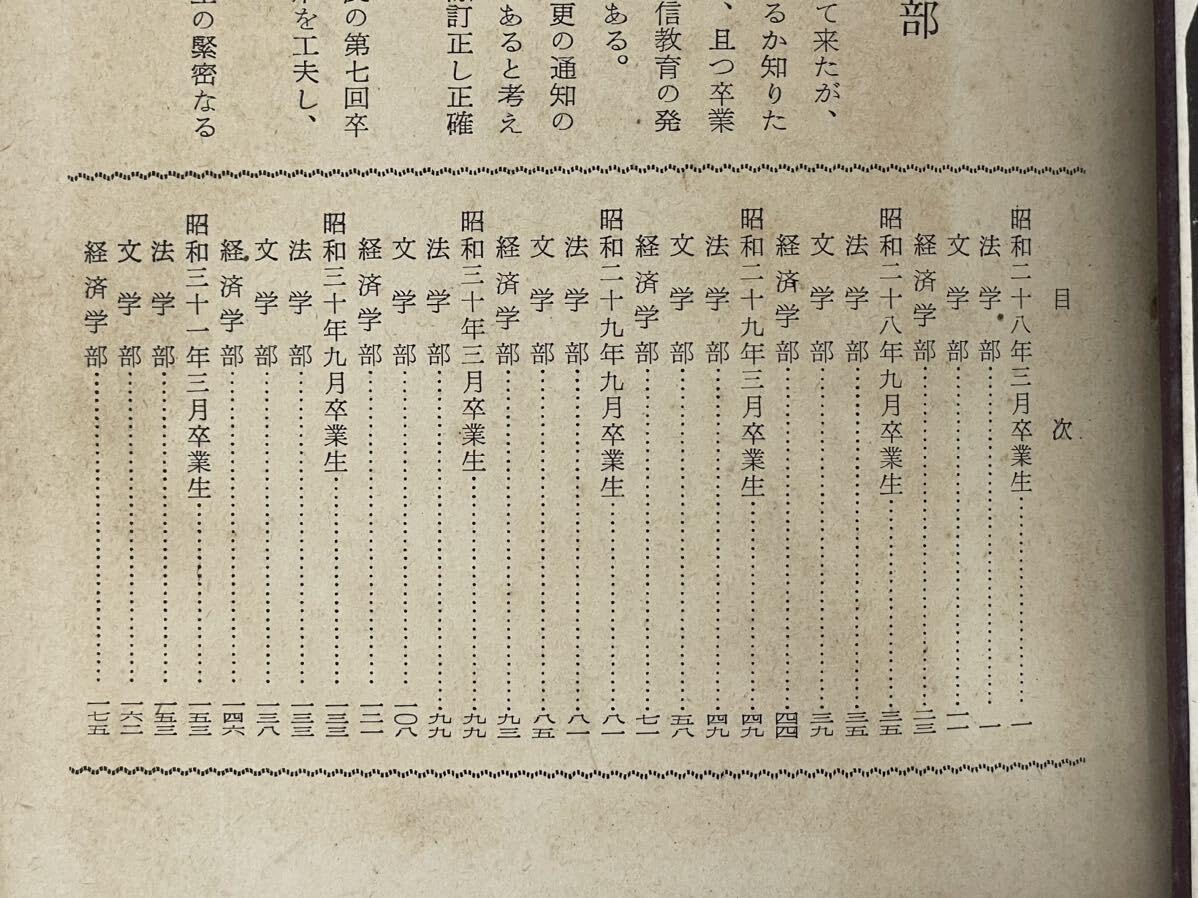 部
て来たが、
るか知りた
、且つ卒業
信教育の発
ある。
更の通知の
あると考え
訂正し正確
の第七回卒
を工夫し、
の緊密なる
目次
昭和二十八年三月卒業生……………一
法学部……………一
文学部……………
経済学部……………二三
昭和二十八年九月卒業生……………三五
法学部……………三五
文学部……………三九
経済学部……………四四
昭和二十九年三月卒業生……………四九
法学部……………四九
文学部……………五八
経済学部……………七一
昭和二十九年九月卒業生……………八一
法学部……………八一
文学部……………八五
経済学部……………九三
昭和三十年三月卒業生……………九九
法学部……………九九
文学部……………一〇八
経済学部……………一二一
昭和三十年九月卒業生……………一三三
法学部……………一三三
文学部……………一三八
経済学部……………一四六
昭和三十一年三月卒業生……………一五三
法学部……………一五三
文学部……………一六二
経済学部……………一七五